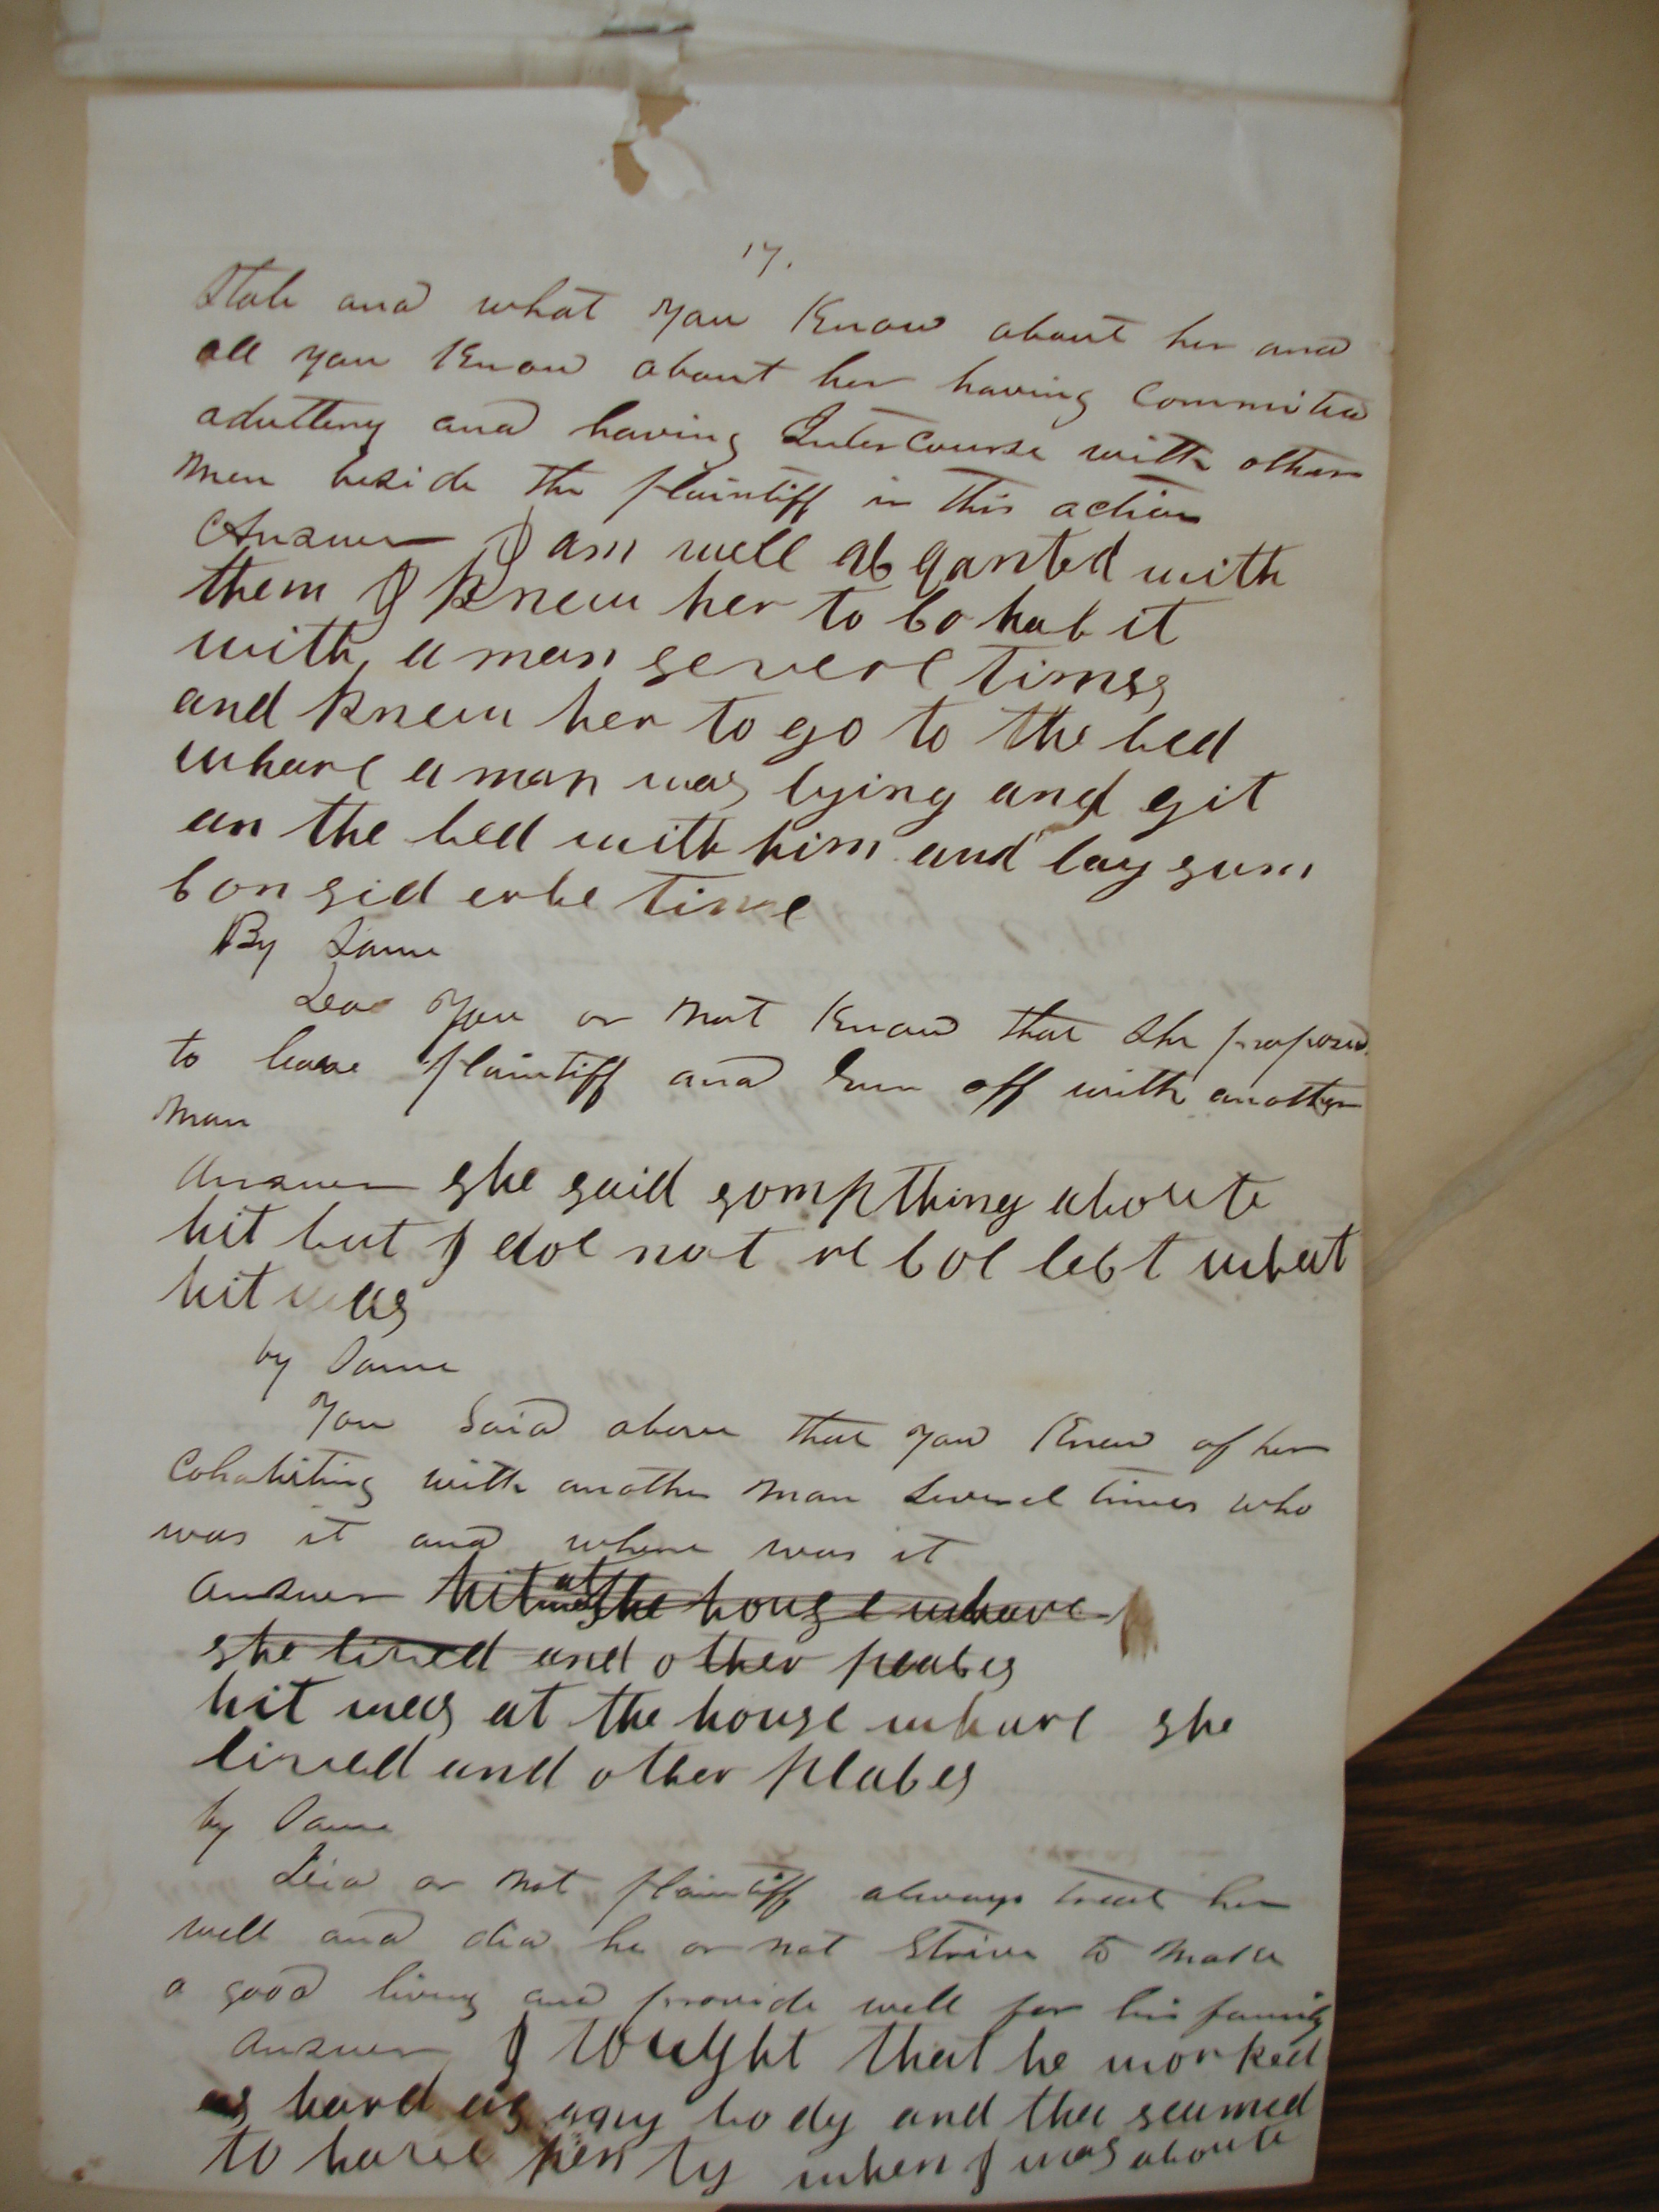 17.
State and what you Know about her and
all you Know about her having Committed
adultery and having Intercourse with other
Men beside the plaintiff in this action
Answer I am well acqanted with
them I knew her to cohabit
with a man severl times
and knew her to go to the bed
whare a man was lying and git
on the bed with him and lay sum
considerbe time
By Same
Do you or not Know that She proposed
to leave plaintiff and run off with another
Man
Answer she said sompthing aboute
hit but I doe not recoelect what
hit was
by Same
You Said above that you Knew of her
Cohabiting with another Man Several times who
was it and where was it
answer hit was at the house whare
she lived and other places
hit was at the house whare she
lived and other places
by Same
Did or not plaintiff always treat her
well and did he or not Strive to Make
a good living and provide well for his family
answer I tought that he worked
as hard as any body and tha seamed
to have plenty when I was aboute